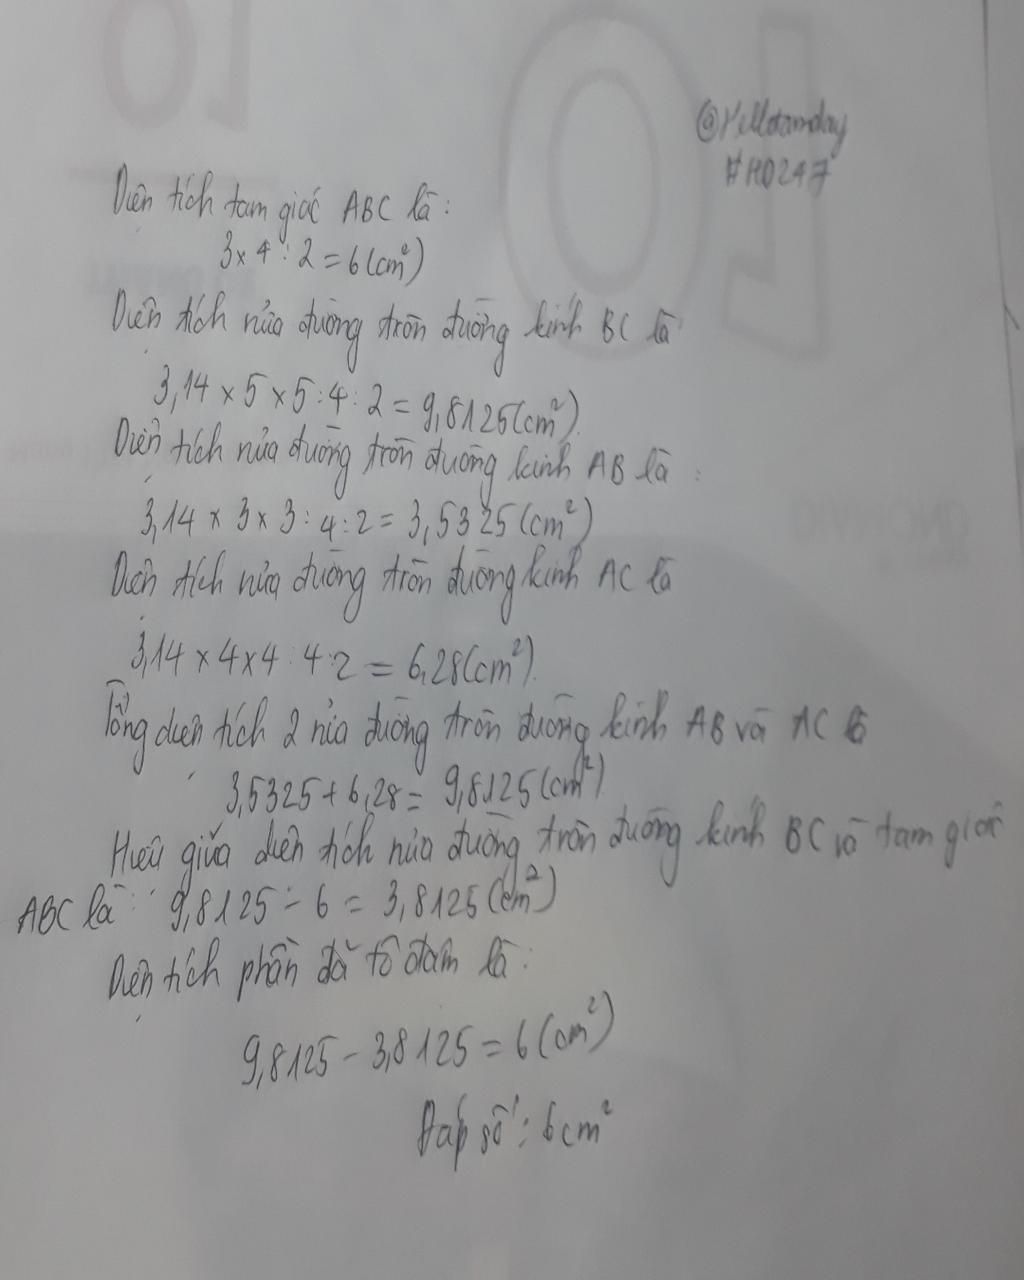 @Hellotamday
#H0247
Diện tích tam giác ABC là:
3 x 4 : 2 = 6 (cm²)
Diện tích nửa đường tròn đường kính BC là
3,14 x 5 x 5 : 4 : 2 = 9,8125 (cm²)
Diện tích nửa đường tròn đường kính AB là :
3,14 x 3 x 3 : 4 : 2 = 3,5325 (cm²)
Diện tích nửa đường tròn đường kính AC là
3,14 x 4 x 4 : 4 : 2 = 6,28 (cm²)
Tổng diện tích 2 nửa đường tròn đường kính AB và AC là
3,5325 + 6,28 = 9,8125 (cm²)
Hiệu giữa diện tích nửa đường tròn đường kính BC và tam giác
ABC là : 9,8125 - 6 = 3,8125 (cm²)
Diện tích phần đã tô đậm là :
9,8125 - 3,8125 = 6 (cm²)
Đáp số : 6 cm²